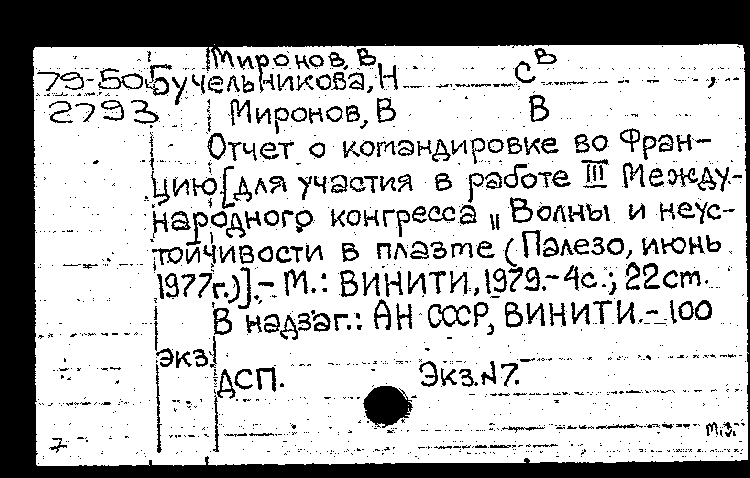 Миронов, В
79-50 Бучельникова, Н С В ,
2793 Миронов, В В
Отчет о командировке во Фран-
цию [для участия в работе III Между-
народного конгресса „Волны и неус-
тойчивости в плазме (Палезо, июнь
1977г.)].- М.: ВИНИТИ, 1979.-4с.; 22ст.
В надзаг.: АН СССР, ВИНИТИ.-100
Экз.
ДСП. Экз.N7.
7 М.З.